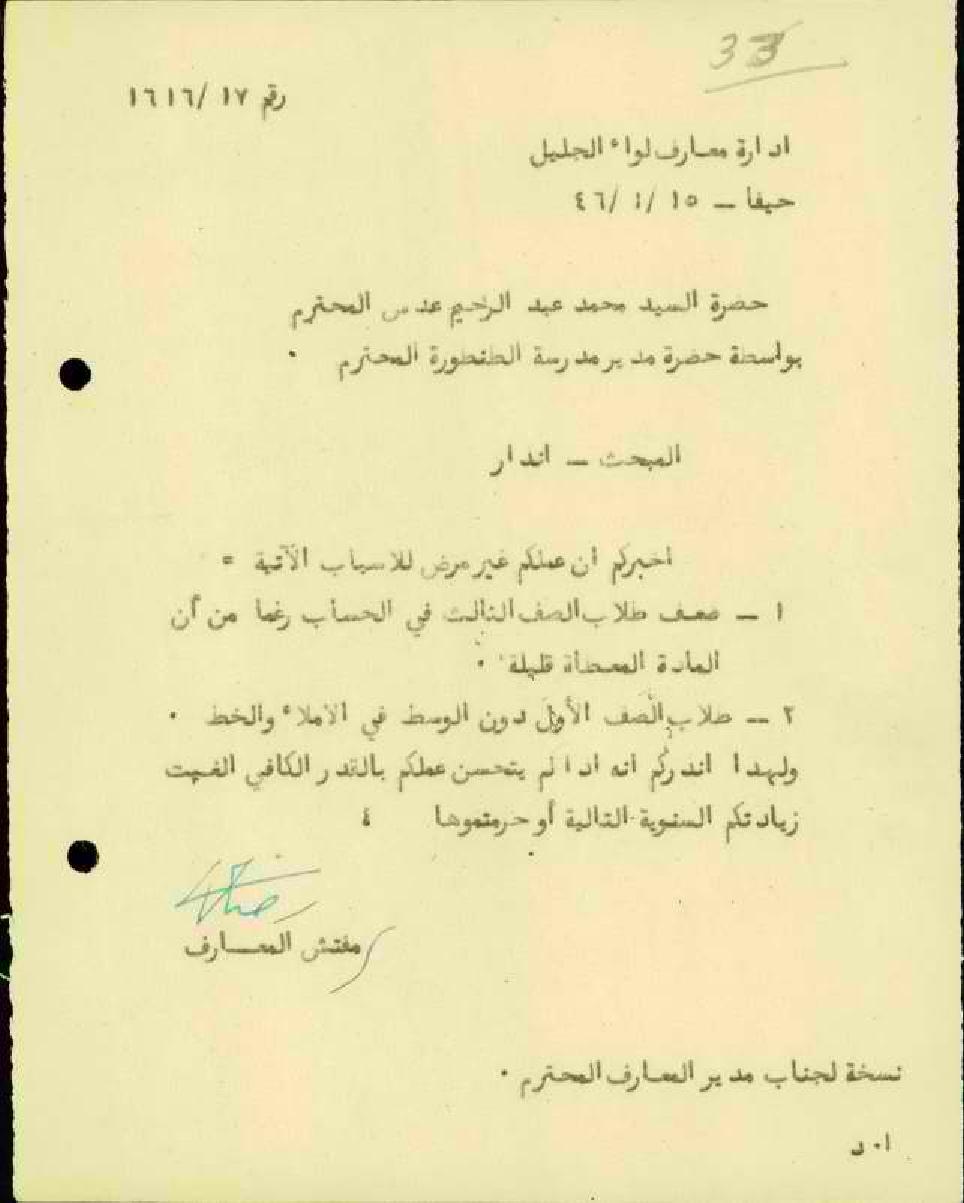 33
رقم ١٧ /١٦١٦
ادارة معارف لواء الجليل
حيفا ــ ١٥ /١ /٤٦
حضرة السيد محمد عبد الرحيم عدس المحترم
بواسطة حضرة مدير مدرسة الطنطورة المحترم ٠
المبحث ــ اندار
اخبركم ان عملكم غير مرض للاسباب الآتية =
١ ــ ضعف طلاب الصف الثالث في الحساب رغما من أن
المادة المعطاة قليلة ٠
٢ ــ طلاب الصف الأول دون الوسط في الاملاء والخط ٠
ولهدا اندركم انه ادا لم يتحسن عملكم بالقدر الكافي الغيت
زيادتكم السنوية التالية أو حرمتموها ٤
مفتش المعــارف
نسخة لجناب مدير المعارف المحترم ٠
ا٠ د